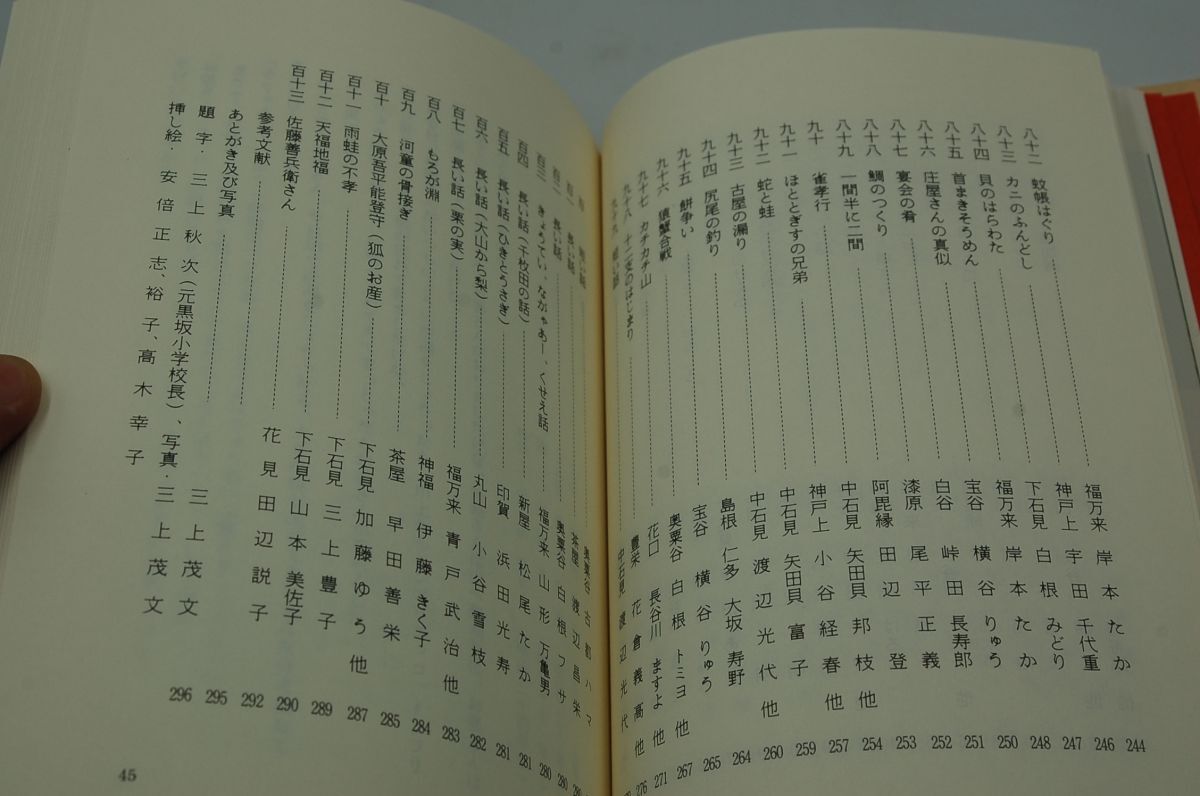 八十二 蚊帳はぐり 福万来 岸本たか 244
八十三 カニのふんどし 神戸上 宇田千代重 246
八十四 貝のはらわた 下石見 白根みどり 247
八十五 首まきそうめん 福万来 岸本たか 248
八十六 庄屋さんの真似 宝谷 横谷りゅう 250
八十七 宴会の肴 白谷 峠田長寿郎 251
八十八 鯛のつくり 漆原 尾平正義 252
八十九 一間半に二間 阿毘縁 田辺登 253
九十 雀孝行 中石見 矢田貝邦枝他 254
九十一 ほととぎすの兄弟 神戸上 小谷経春他 257
九十二 蛇と蛙 中石見 矢田貝富子 259
九十三 古屋の漏り 中石見 渡辺光代他 260
九十四 尻尾の釣り 島根 仁多 大坂寿野 264
九十五 餅争い 宝谷 横谷りゅう 265
九十六 猿蟹合戦 奥粟谷 白根トミヨ他 267
九十七 カチカチ山 花口 長谷川ますよ他 271
九十八 十二支のはじまり 豊栄 花倉義高他 276
中石見 渡辺光代
奥粟谷 古都ハマ
長い話 茶屋 渡辺昌栄 280
百二 長い話 奥粟谷 白根フサ 280
百三 きょうてい、ながゃあー、くせえ話 福万来 山形万亀男 280
百四 長い話(千枚田の話) 新屋 松尾たか 281
百五 長い話(ひきとうさぎ) 印賀 浜田光寿 281
百六 長い話(大山から梨) 丸山 小谷雪枝 282
百七 長い話(栗の実) 福万来 青戸武治他 283
百八 もろが淵 神福 伊藤きく子 284
百九 河童の骨接ぎ 茶屋 早田善栄 285
百十 大原吾平能登守(狐のお産) 下石見 加藤ゆう他 287
百十一 雨蛙の不孝 下石見 三上豊子 289
百十二 天福地福 下石見 山本美佐子 290
百十三 佐藤善兵衛さん 花見 田辺説子 292
参考文献 295
あとがき及び写真 三上茂文 296
題字・三上秋次(元黒坂小学校長)、写真・三上茂文
挿し絵・安倍正志、裕子、高木幸子
45